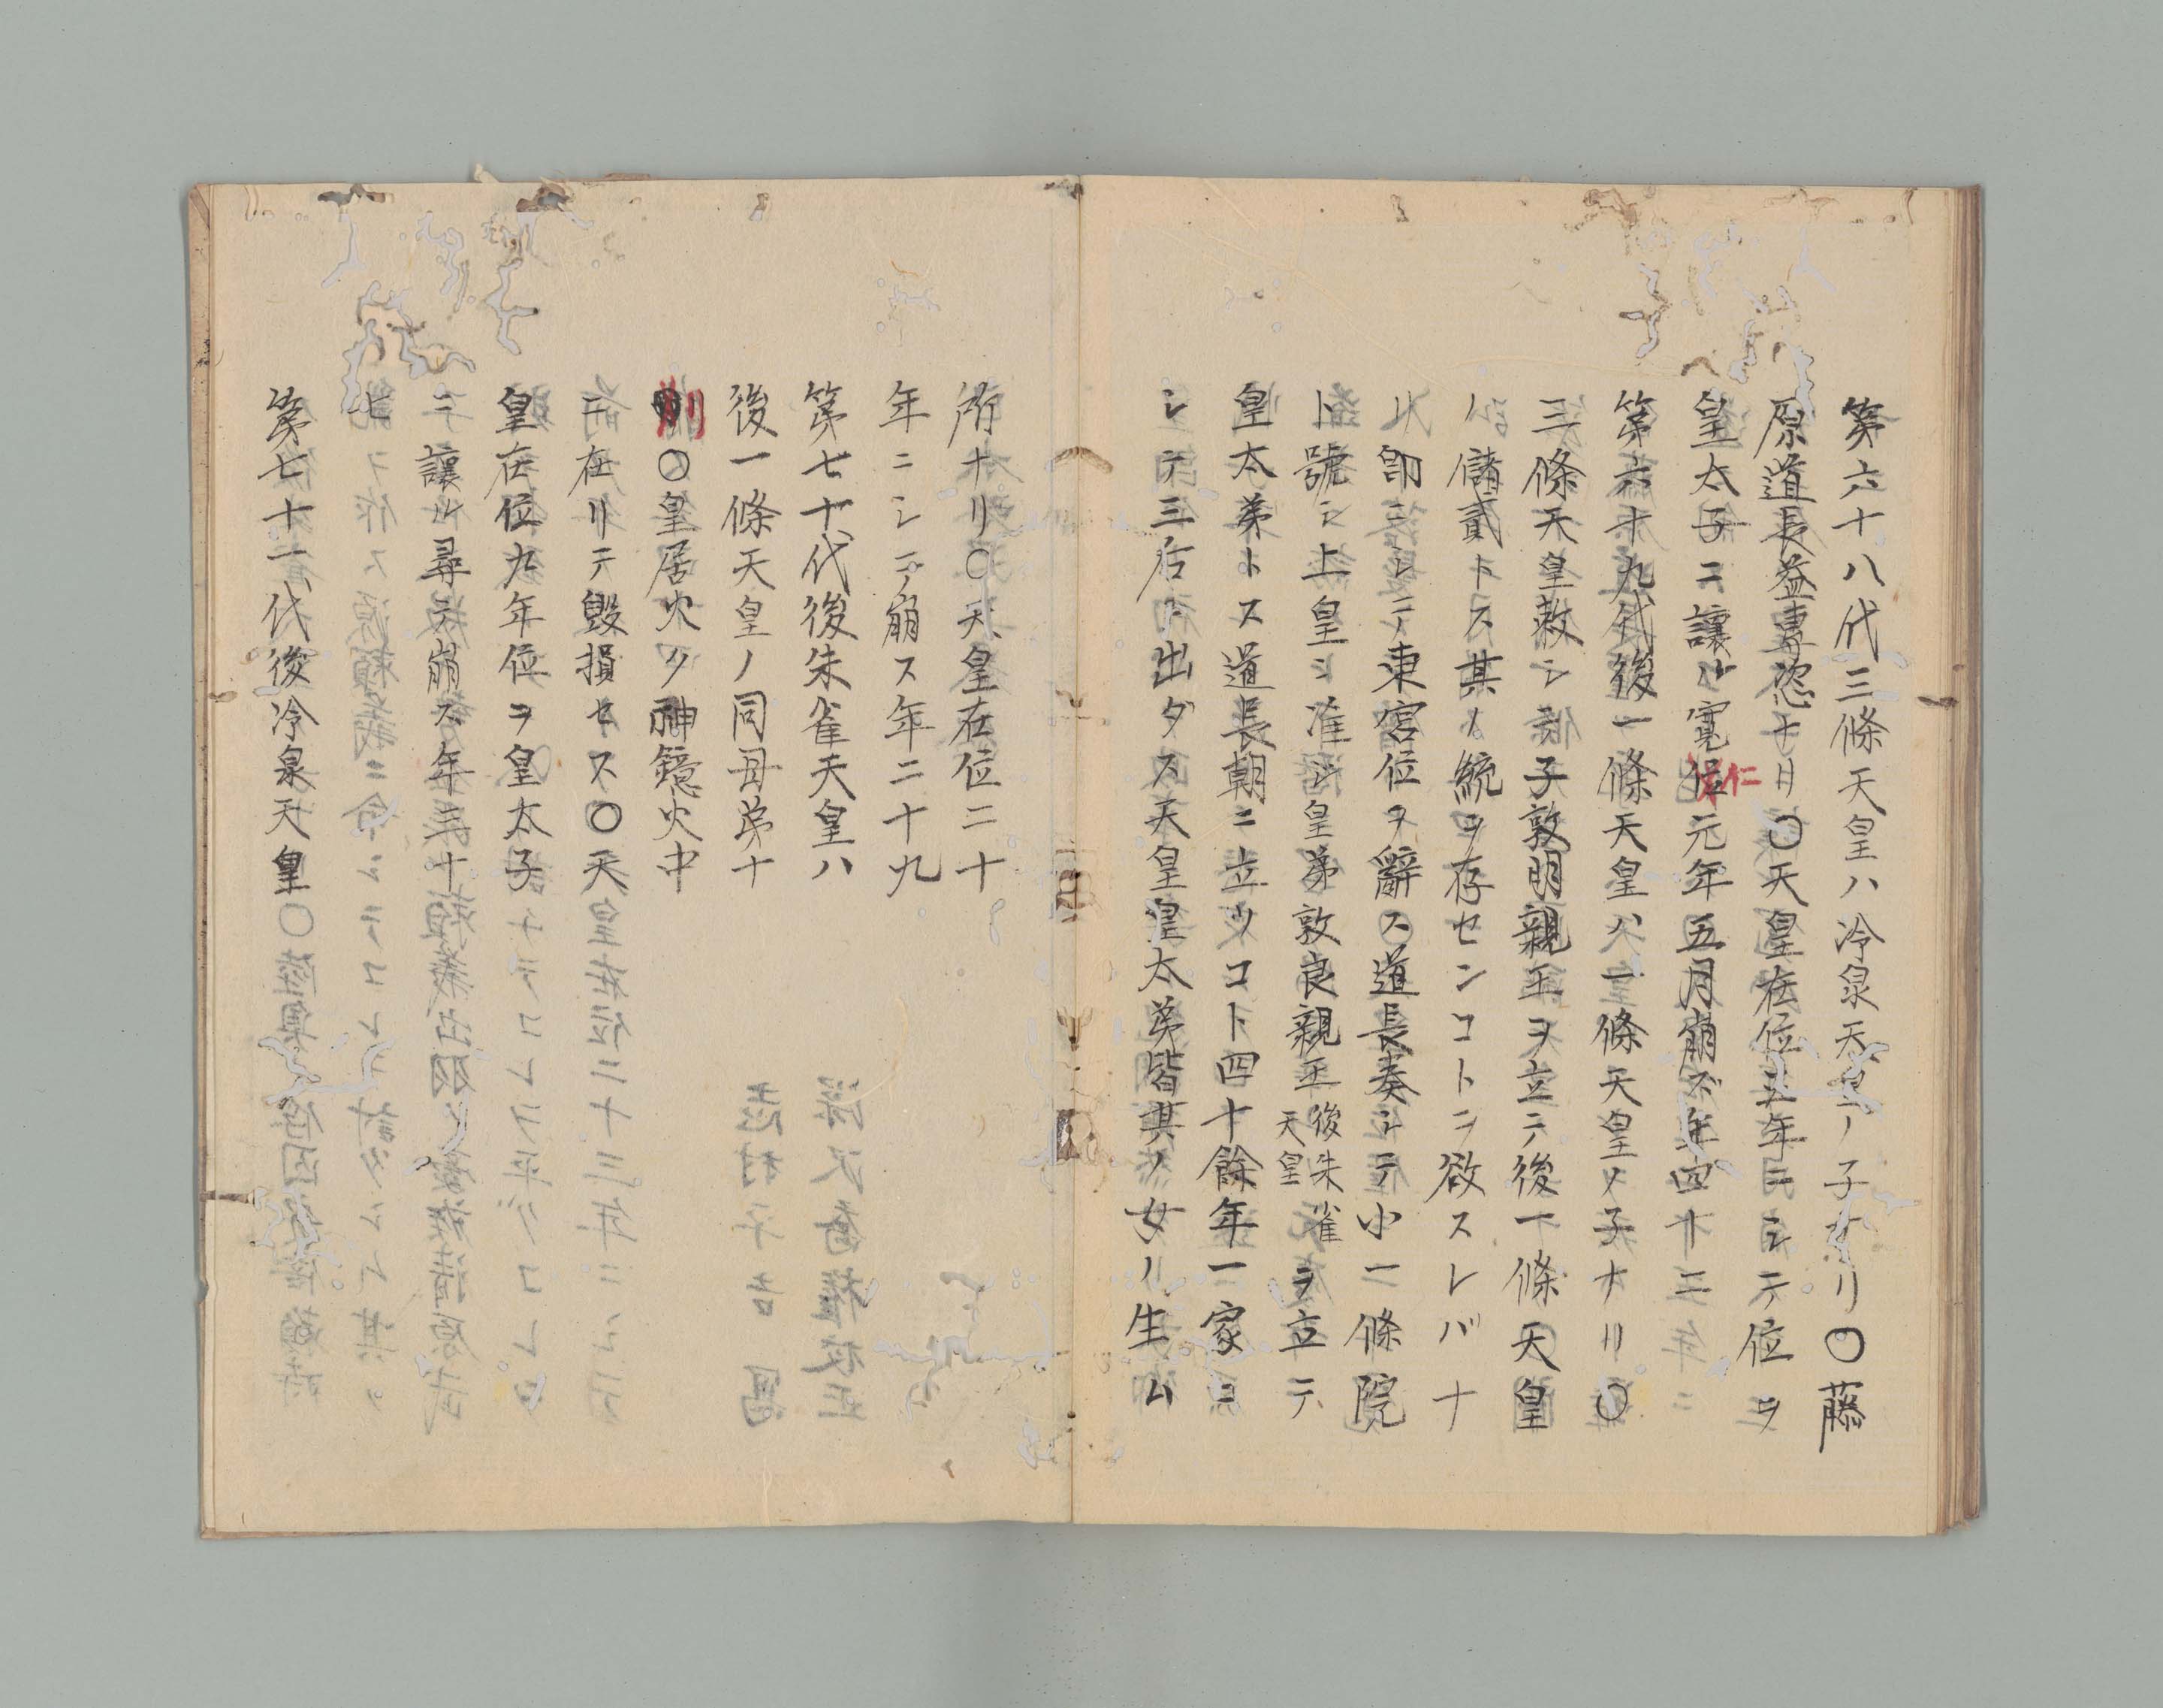 第六十八代三條天皇ハ冷泉天皇ノ子ナリ〇藤
原道長益專恣ナリ〇天皇在位五年ニシテ位ヲ
皇太子ニ讓ル寛仁元年五月崩ズ年四十二
第六十九代後一條天皇ハ一條天皇ノ子ナリ〇
三條天皇敕シテ子敦明親王ヲ立テ後一條天皇
ノ儲貳トス其ノ統ヲ存センコトヲ欲スレバナ
リ卽ニシテ東宮位ヲ辭ス道長奏シテ小一條院
ト號シ上皇ニ准シ皇弟敦良親王後朱雀天皇ヲ立テ
皇太弟トス道長朝ニ立ツコト四十餘年一家ヨ
シテ三后ヲ出ダス天皇皇太弟皆其ノ女ノ生ム
所ナリ〇天皇在位二十
年ニシテ崩ス年二十九
第七十代後朱雀天皇ハ
後一條天皇ノ同母弟ナ
リ〇皇居火ク神鏡火中
ニ在リテ毀損セス〇天
皇在位九年位ヲ皇太子
ニ讓ル尋テ崩ス年三十
七
第七十一代後冷泉天皇〇